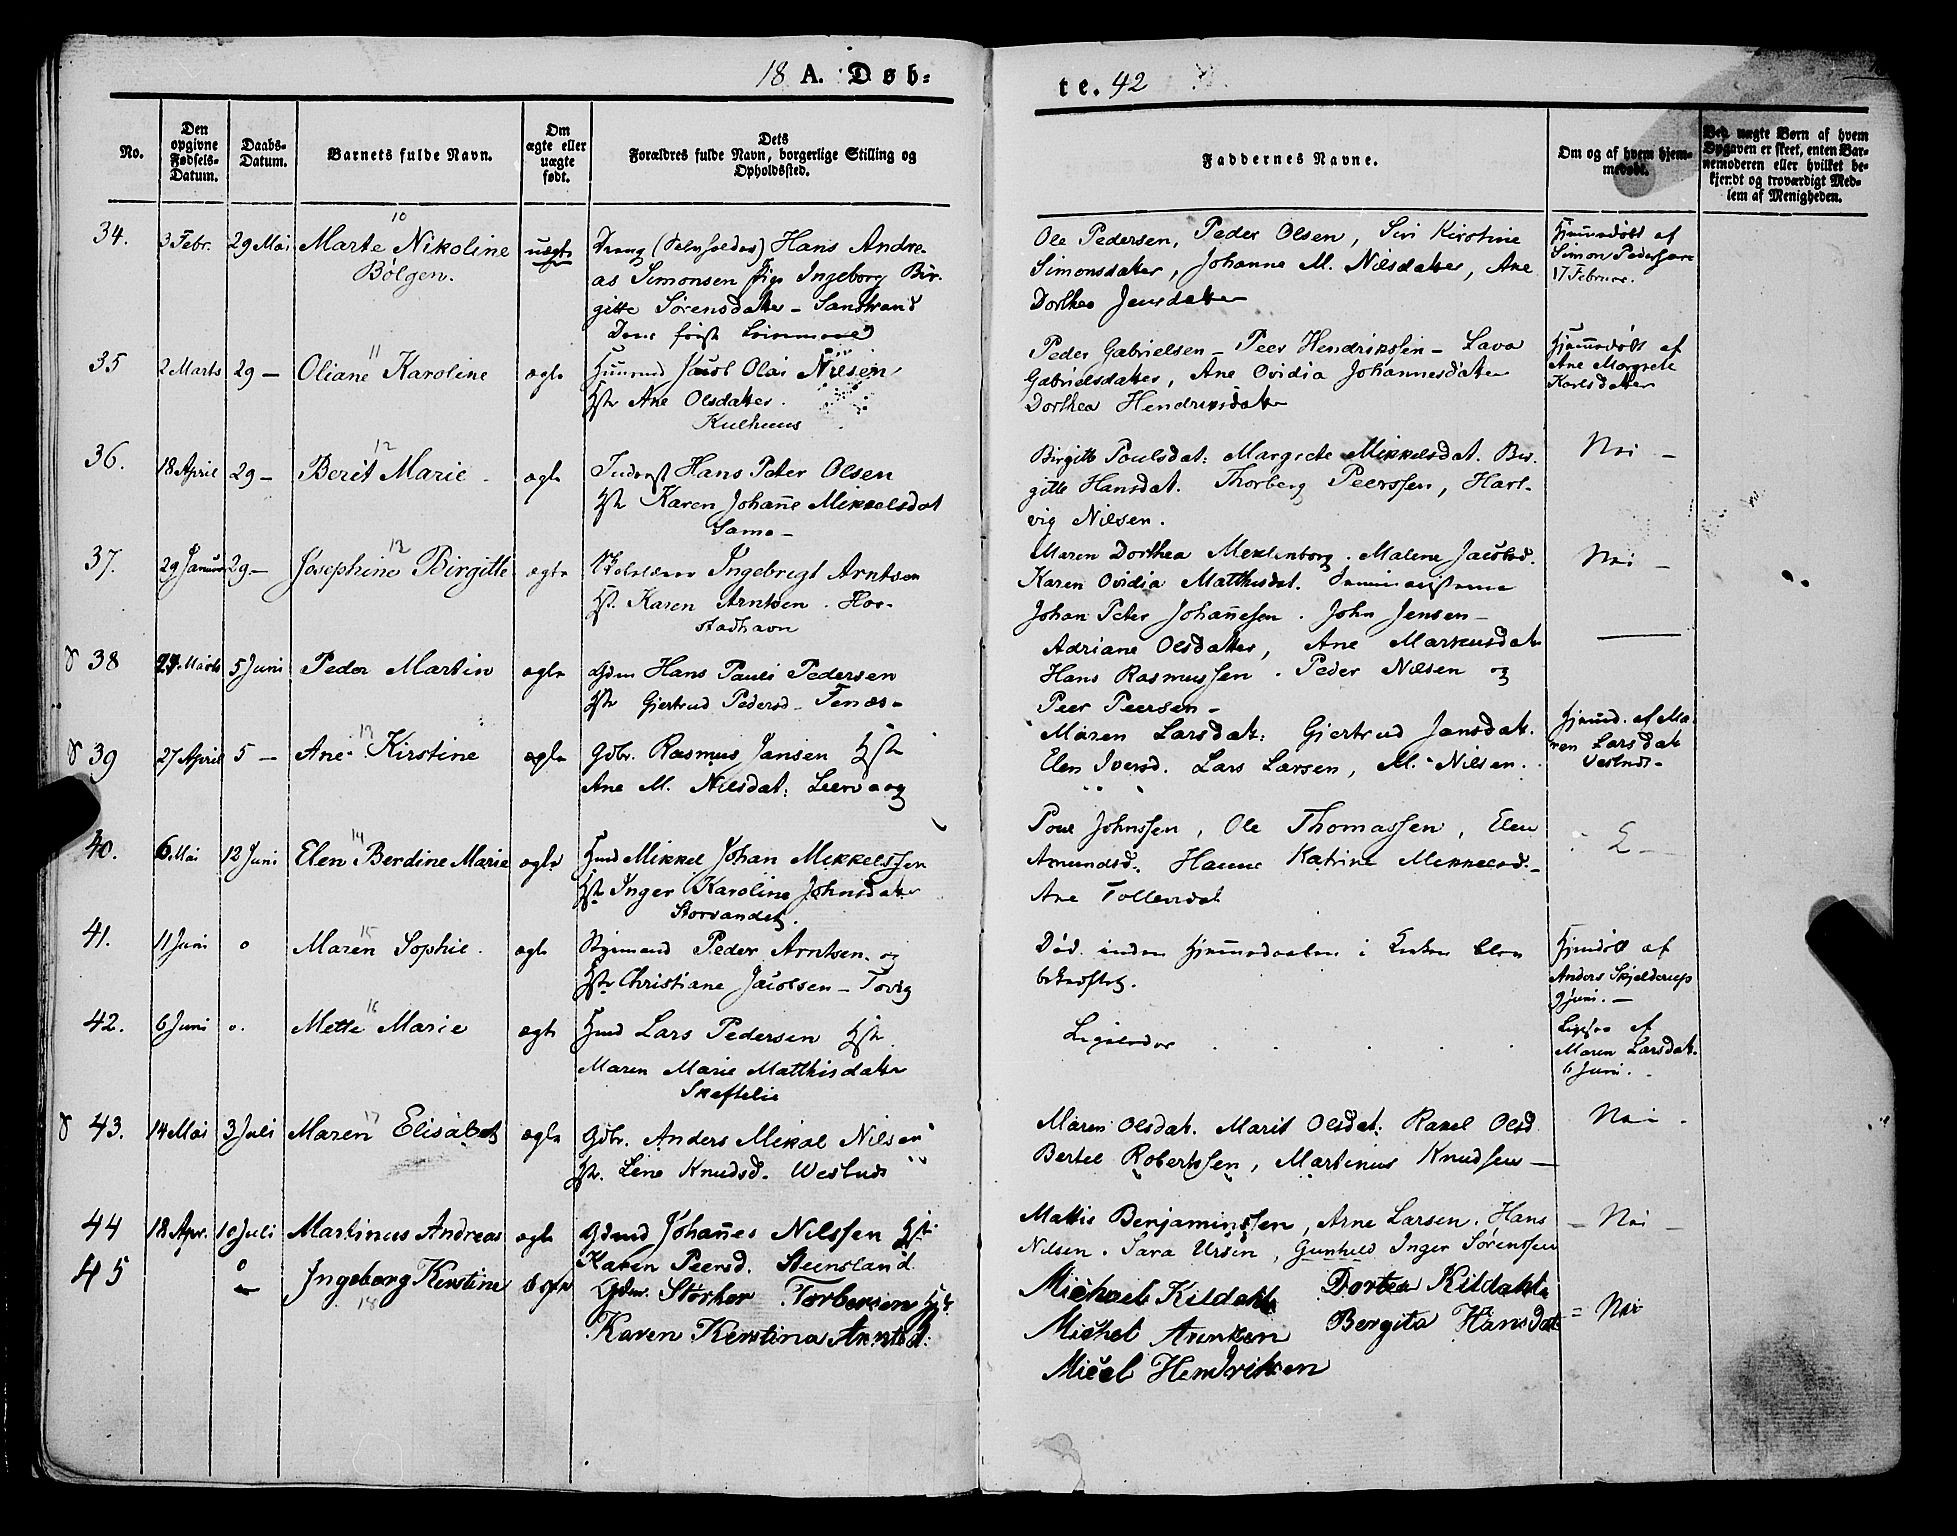 18 A. Døb=
te. 42
No.
Den opgivne Fødsels-Datum.
Daabs-Datum.
Barnets fulde Navn.
Om ægte eller uægte født.
Dets
Forældres fulde Navn, borgerlige Stilling og
Opholdsted.
Faddernes Navne.
Om og af hvem hjem-
medøbt.
Ved uægte Børn af hvem
Opgaven er skeet, enten Bar-
nemoderen eller hvilket be-
kjendt og troværdigt Med-
lem af Menigheden.
34. 3 Febr. 29 Mai Marte Nikoline uægte Hans Andre-
10
Bølgen.
as Simonsen Pige Ingeborg Bir-
gitte Sørensdatter - Sandstrand
Ole Pedersen, Peder Olsen, Siri Kirstine
Simonsdatter, Johanne M. Nilsdatter, Ane
Dorthea Jensdatter
Hjemmedøbt af
Simon Pedersen
17 Februar.
35 2 Marts 29 - Oliane Karoline ægte Huusmd Jacob Olai Nilsen
11
Hst Ane Olsdatter.
Kulhuus
Peder Gabrielsen - Peer Hendriksen - Lava
Gabrielsdatter, Ane Ovidia Johannesdatter
Dorthea Hendriksdatter
Hjemmedøbt af
Ane Margrete
Karlsdatter
36. 18 April 29 - Berit Marie - ægte Inderst Hans Peter Olsen
12
Hst Karen Johanne Mikkelsdat
Samo -
Birgitte Poulsdat: Margrete Mikkelsdat. Bir-
gitte Hansdat. Thorberg Peerssen, Hart-
vig Nilsen.
Nei -
37. 29 Januar 29 - Josephine Birgitte ægte Skolelærer Ingebrigt Arntsen
13
Hst. Karen Arntsen. Hov-
stadhavn
Maren Dorthea Meklenborg. Malene Jacobsd.
Karen Ovidia Matthisdat. Seminaristerne
Johan Peter Johannesen. John Jensen -
Nei -
38 27 Marts 5 Juni Peder Martin ægte Gdm Hans Pauli Pedersen
Hst Gjertrud Pedersd - Tenæs -
Adriane Olsdatter, Ane Markusdat
Hans Rasmussen. Peder Nilsen og
Peer Peersen -
39 27 April 5 - Ane Kirstine ægte Gdbr. Rasmus Jansen Hst
13
Ane M. Nilsdat: Leervaag
Maren Larsdat: Gjertrud Jansdat.
Elen Iversd. Lars Larsen, M. Nilsen.
Hjemmd. af Ma-
ren Larsdat
40. 6 Mai 12 Juni Elen Berdine Marie ægte Hmd Mikkel Johan Mikkelssen
14
Hst Inger Karoline Johnsdatter
Storvandet.
Poul Johnssen, Ole Thomassen, Elen
Amundsd. Hanne Katrine Mikkelsd.
Ane Tollevsdat
41. 11 Juni o Maren Sophie. ægte Peder Arntsen og
15
Hst Christiane Jacobsen - Tovig
Død inden Hjemmedaaben i Kirken blev
bekræftet.
Hjemdøbt af
Anders Skjelderup
9 Juni. -
42. 6 Juni o. Mette Marie ægte Hmd Lars Pedersen Hst
16
Maren Marie Matthisdatter
Skeftelie
Ligeledes
Ligesaa af
Maren Larsdat.
6 Juni.
43. 14 Mai 3 Juli Maren Elisabet ægte Gdbr. Anders Mikal Nilsen
17
Hst. Lene Knudsd. Westnes
Maren Olsdat. Marit Olsdat: Rakel Olsd
Bertel Robertssen, Martinus Knudsen -
Nei -
44 18 Apr. 10 Juli Martinus Andreas ægte Gdmd Johannes Nilssen Hst
Karen Peersd. Steinsland.
Mattis Benjaminssen, Arne Larsen. Hans
Nilsen. Sara Ursin, Gunhild Inger Sørenssen
- Nei -
45 o Ingeborg Kerstine ægte Gdm. Storker Torbersen Hst.
18
Karen Kerstina Arntsd.
Michael Kildahl Dortea Kildahl
Michel Arentsen Bergita Hansdat
Micel Hendriksen
= Nei